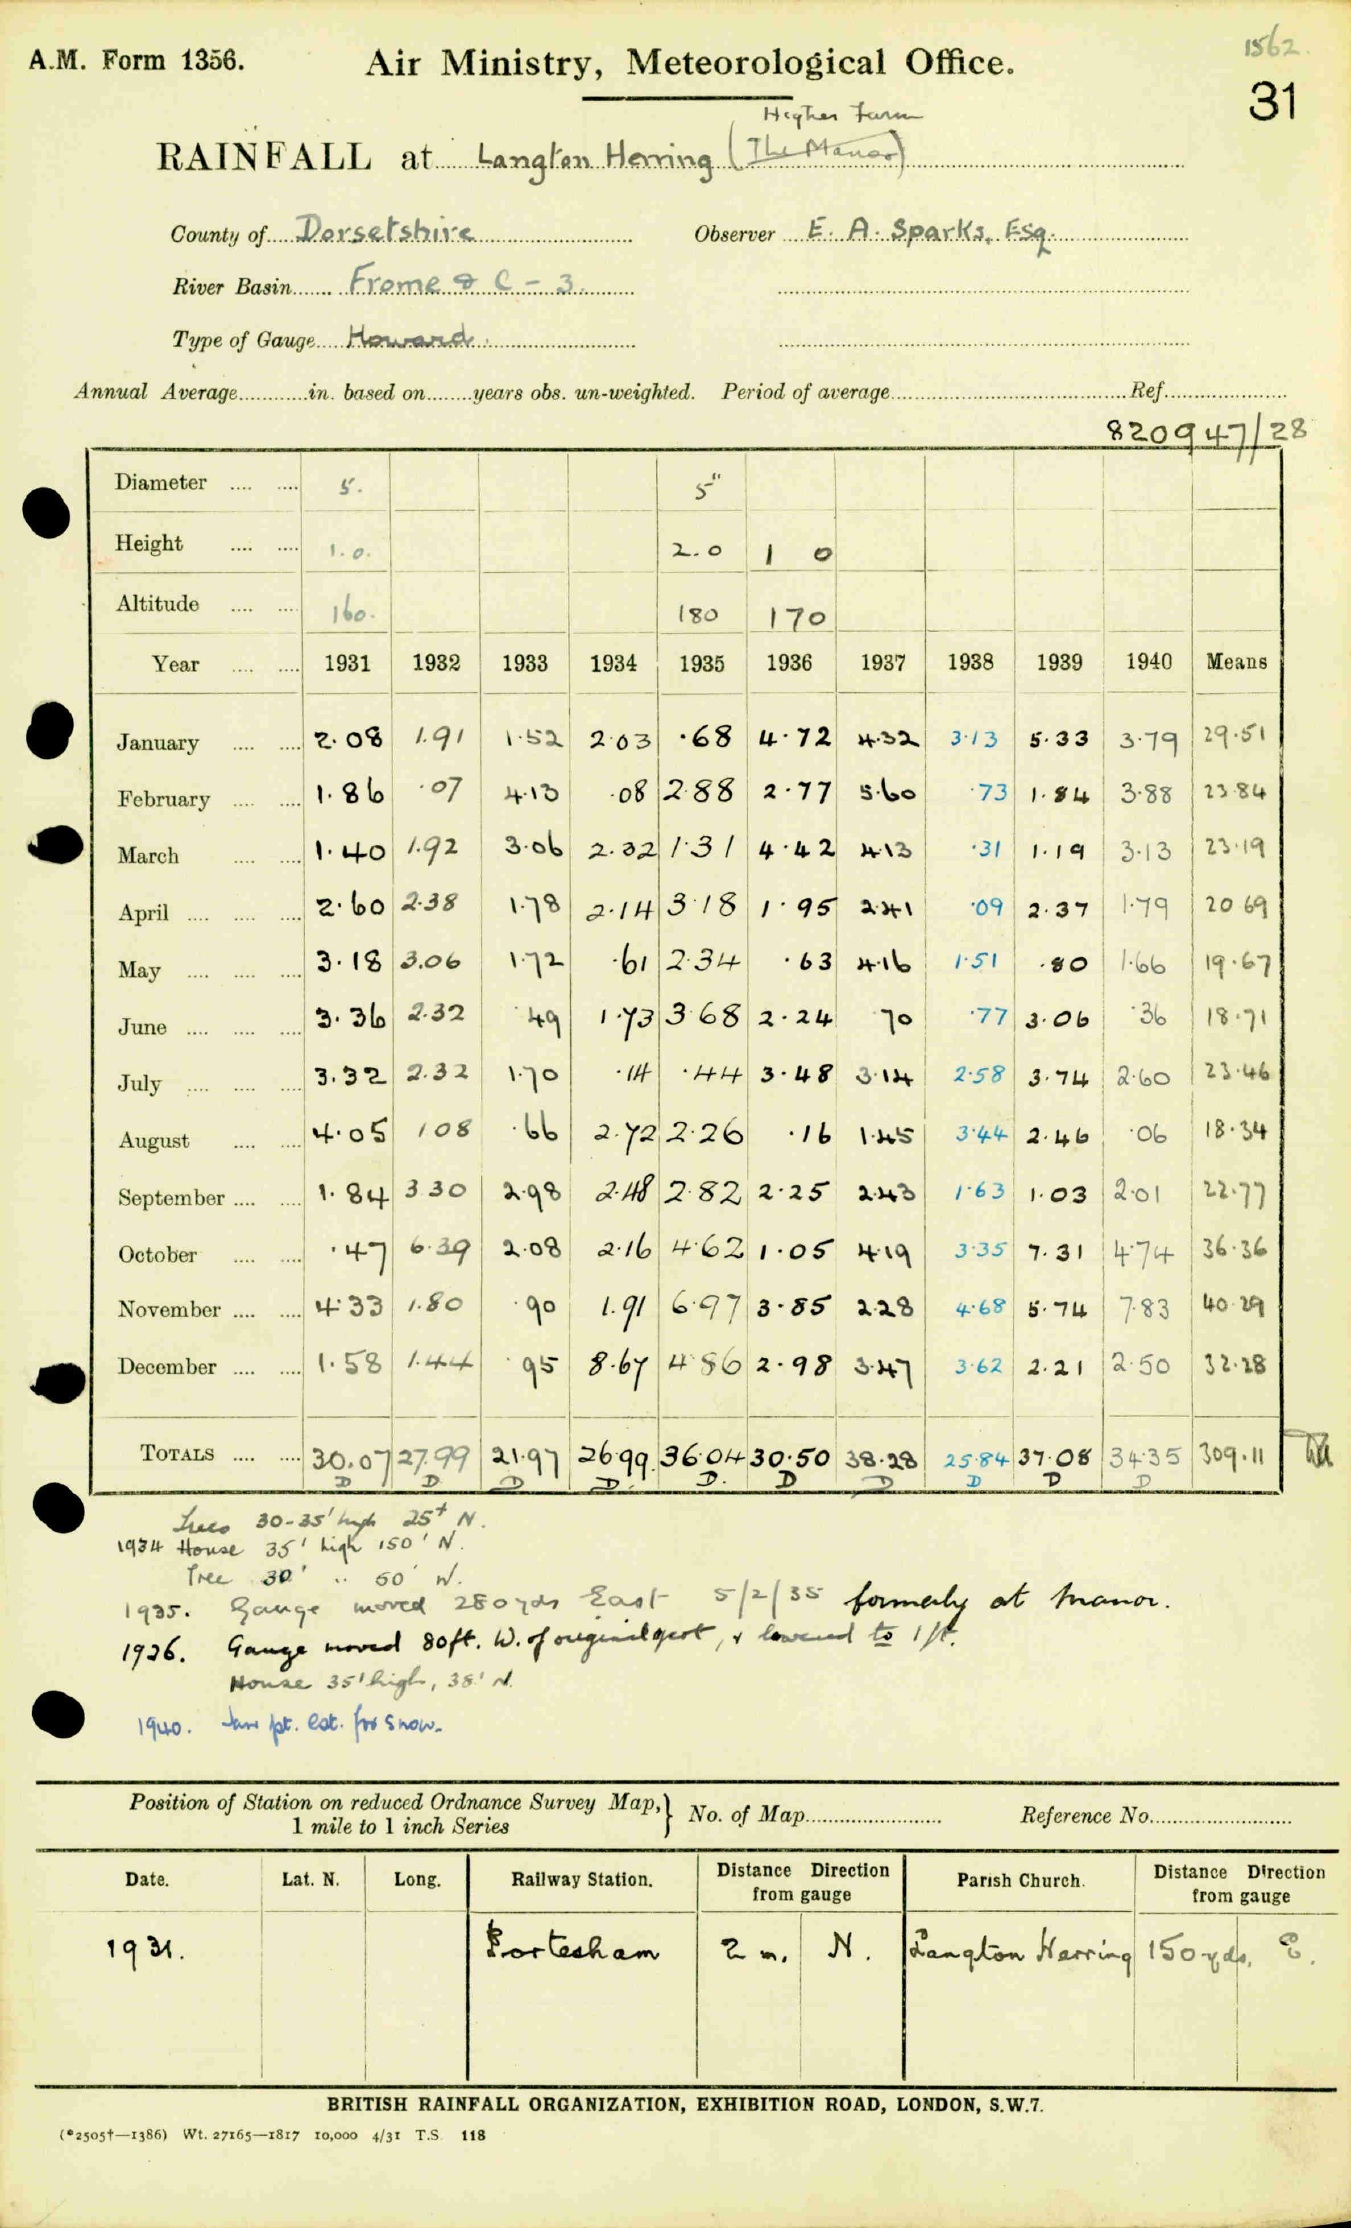 1562.
A.M. Form 1356. Air Ministry, Meteorological Office. 31
Higher Farm
RAINFALL at Langton Herring (The Manor)
County of Dorsetshire Observer E. A. Sparks, Esq.
River Basin Frome & C - 3
Type of Gauge Howard
Annual Average in. based on years obs. un-weighted. Period of average Ref.
820947/28
Diameter 5. 5"
Height 1.0. 2.0 1 0
Altitude 160. 180 170
Year 1931 1932 1933 1934 1935 1936 1937 1938 1939 1940 Means
January 2.08 1.91 1.52 2.03 .68 4.72 4.32 3.13 5.33 3.79 29.51
February 1.86 .07 4.13 .08 2.88 2.77 5.60 .73 1.84 3.88 23.84
March 1.40 1.92 3.06 2.32 1.31 4.42 4.13 .31 1.19 3.13 23.19
April 2.60 2.38 1.78 2.14 3.18 1.95 2.41 .09 2.37 1.79 20 69
May 3.18 3.06 1.72 .61 2.34 .63 4.16 1.51 .80 1.66 19.67
June 3.36 2.32 .49 1.73 3.68 2.24 .70 .77 3.06 .36 18.71
July 3.32 2.32 1.70 .14 .44 3.48 3.14 2.58 3.74 2.60 23.46
August 4.05 1 08 .66 2.72 2.26 .16 1.45 3.44 2.46 .06 18.34
September 1.84 3 30 2.98 2.48 2.82 2.25 2.43 1.63 1.03 2.01 22.77
October .47 6.39 2.08 2.16 4.62 1.05 4.19 3.35 7.31 4.74 36.36
November 4.33 1.80 .90 1.91 6.97 3.85 2.28 4.68 5.74 7.83 40.29
December 1.58 1.44 .95 8.67 4.86 2.98 3.47 3.62 2.21 2.50 32.28
TOTALS 30.07 27.99 21.97 26.99 36.04 30.50 38.28 25.84 37.08 34.35 309.11
D D D D. D. D D D D D
Trees 30-35' high 25' N.
1934 House 35' high 150' N.
Tree 30' " 50' W.
1935. Gauge moved 280 yds East 5/2/35 formerly at Manor.
1936. Gauge moved 80ft. W. of original spot, & lowered to 1 ft.
House 35' high, 38' N.
1940. Jan pt. Est. for snow.
Position of Station on reduced Ordnance Survey Map, 1 mile to 1 inch Series } No. of Map Reference No.
Date. Lat. N. Long. Railway Station. Distance Direction from gauge Parish Church. Distance Direction from gauge
1931. Portesham 2 m. N. Langton Herring 150 yds. E.
BRITISH RAINFALL ORGANIZATION, EXHIBITION ROAD, LONDON, S.W.7.
(*2505†—1386) Wt. 27165—1817 10,000 4/31 T.S. 118